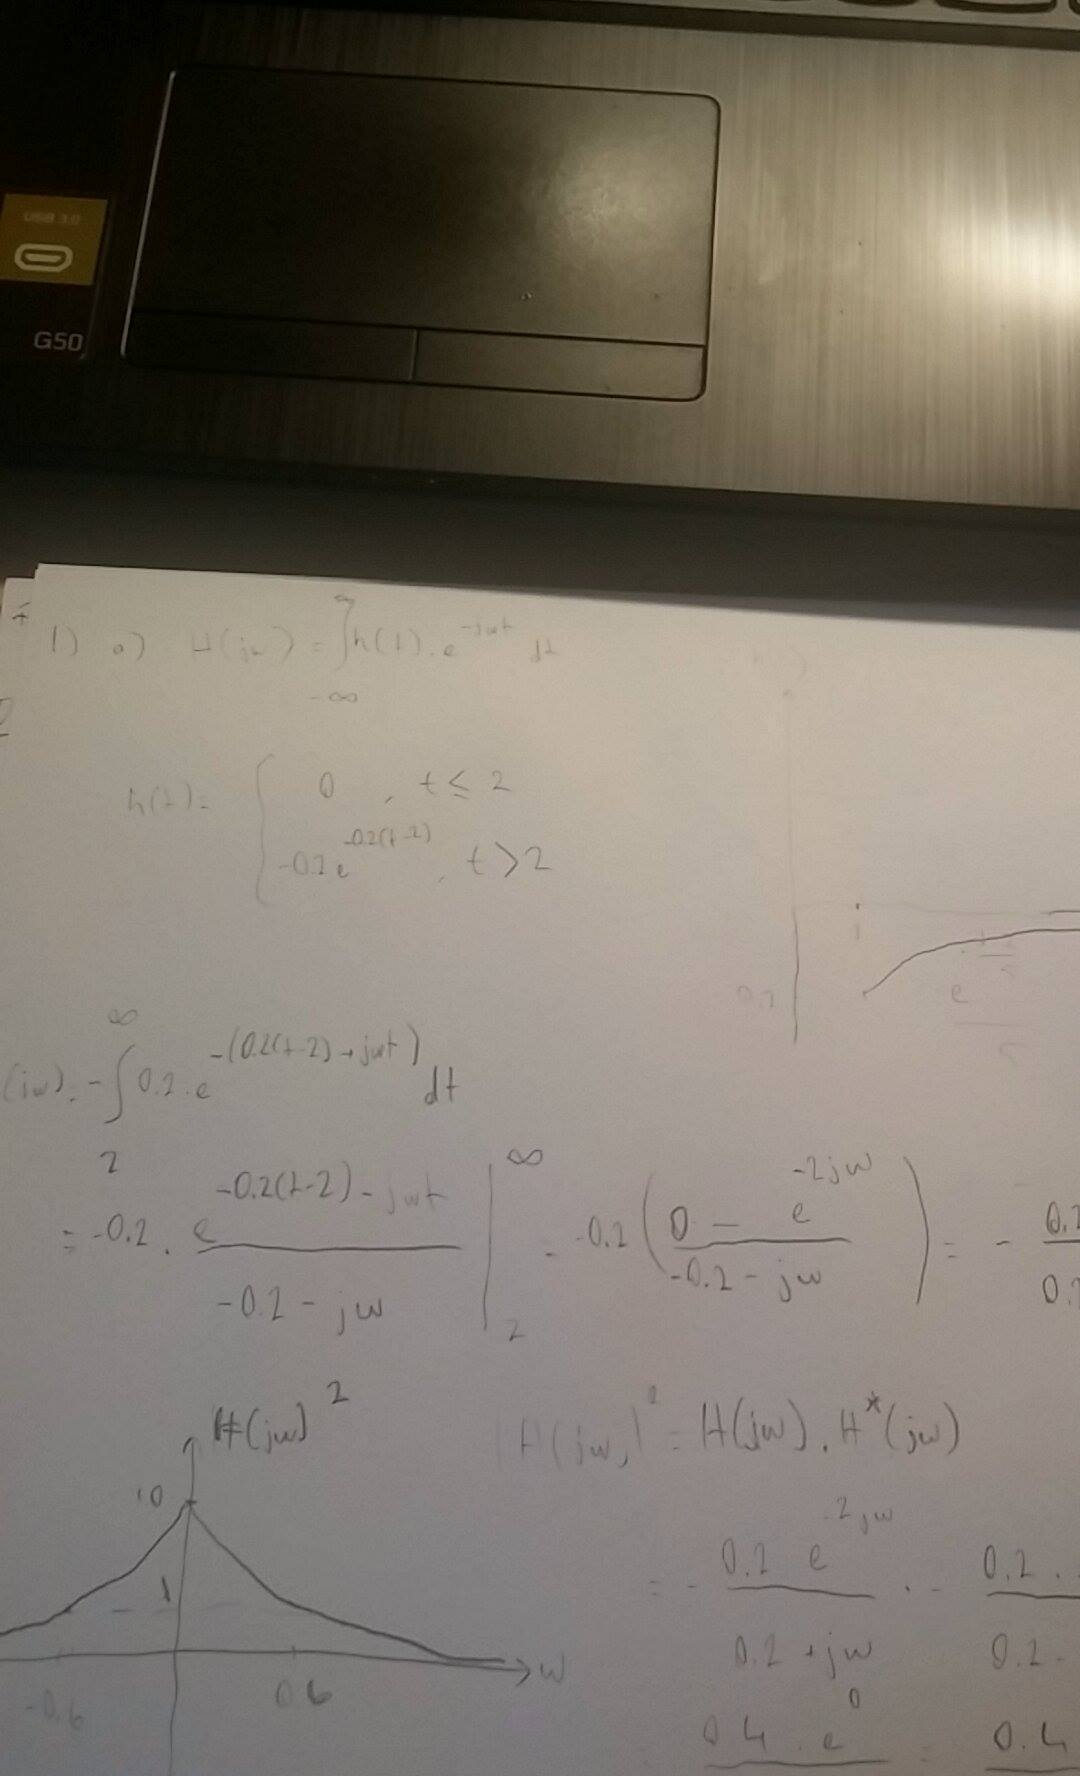 USB 3.0
G50
1) a) H(jw) = ∫ h(t) . e^{-jwt} dt
∞
-∞
h(t) = { 0 , t ≤ 2
-0.2 e^{-0.2(t-2)} , t > 2
(jw) = - ∫ 0.2 . e^{-(0.2(t-2) + jwt)} dt
∞
2
= -0.2 . e^{-0.2(t-2) - jwt} / (-0.2 - jw) |_2^∞ = -0.2 ( (0 - e^{-2jw}) / (-0.2 - jw) ) = - 0.2 / 0.2
H(jw)^2
10
1
-0.6 0.6 w
H(jw)^2 = H(jw) . H*(jw)
= - 0.2 e^{-2jw} / (0.2 + jw) . - 0.2 . / 0.2 -
0.4 . e^0 = 0.4